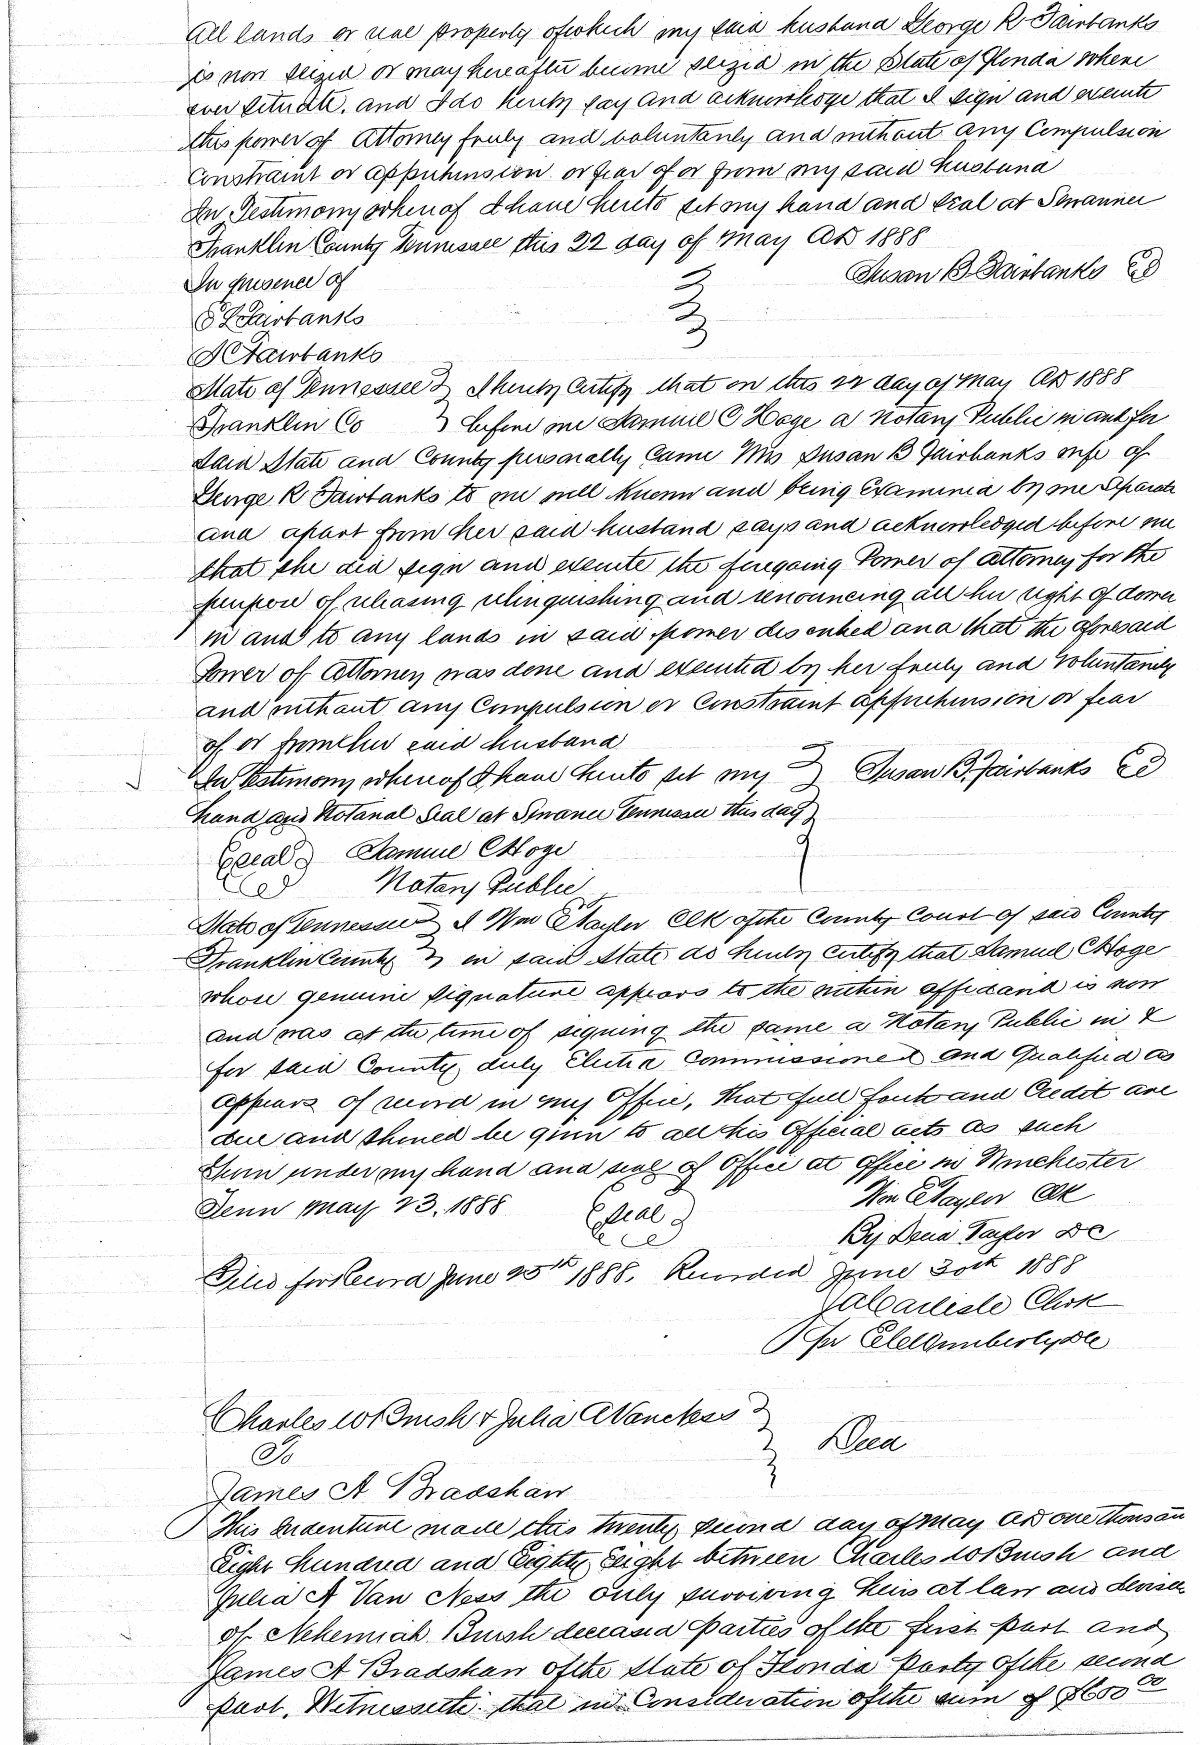 All lands or real property of which my said husband George R Fairbanks
is now seized or may hereafter become seized in the State of Florida where
ever situate. and I do hereby say and acknowledge that I sign and execute
this power of Attorney freely and voluntarily and without any Compulsion
Constraint or apprehension or fear of or from my said husband
In Testimony whereof I have hereto set my hand and seal at Sewannee
Franklin County Tennessee this 22 day of May AD 1888
In presence of
Susan B Fairbanks
Fairbanks
Fairbanks
State of Tennessee I hereby Certify that on this 22 day of May AD 1888
Franklin Co before me Samuel C Hoge a Notary Public in and for
said State and County personally Came Mrs Susan B Fairbanks wife of
George R Fairbanks to me well Known and being Examined by me Separate
and apart from her said husband says and acknowledged before me
that she did sign and execute the foregoing Power of Attorney for the
purpose of releasing relinquishing and renouncing all her right of dower
in and to any lands in said power described and that the aforesaid
Power of Attorney was done and executed by her freely and Voluntarily
and without any Compulsion or Constraint apprehension or fear
of or from her said husband
In Testimony whereof I have hereto set my Susan B. Fairbanks
hand and Notarial Seal at Sewanee Tennessee this day
Seal Samuel C Hoge
Notary Public
State of Tennessee I Wm E Taylor Clk of the County Court of said County
Franklin County in said State do hereby Certify that Samuel C Hoge
whose genuine signature appears to the within affidavid is now
and was at the time of signing the same a Notary Public in &
for said County duly Elected Commissioned and Qualified as
appears of record in my Office, That full faith and Credit are
due and should be given to all his Official acts as such
Given under my hand and seal of Office at office in Winchester
Tenn May 23. 1888 Seal Wm E Taylor Clk
By Taylor DC
Filed for Record June 25th 1888. Recorded June 30th 1888
J A Carlisle Clerk
Per
Charles W Brush & Julia A Vaness
To
Deed
James A Bradshaw
This Indenture made this twenty second day of May AD one thousan
Eight hundred and Eighty Eight between Charles W Brush and
Julia A Van Ness the only surviving heirs at law and devisee
of Nehemiah Brush deceased Parties of the first part and
James A Bradshaw of the State of Florida Party of the second
part. Witnesseth: that in Consideration of the sum of $600 00